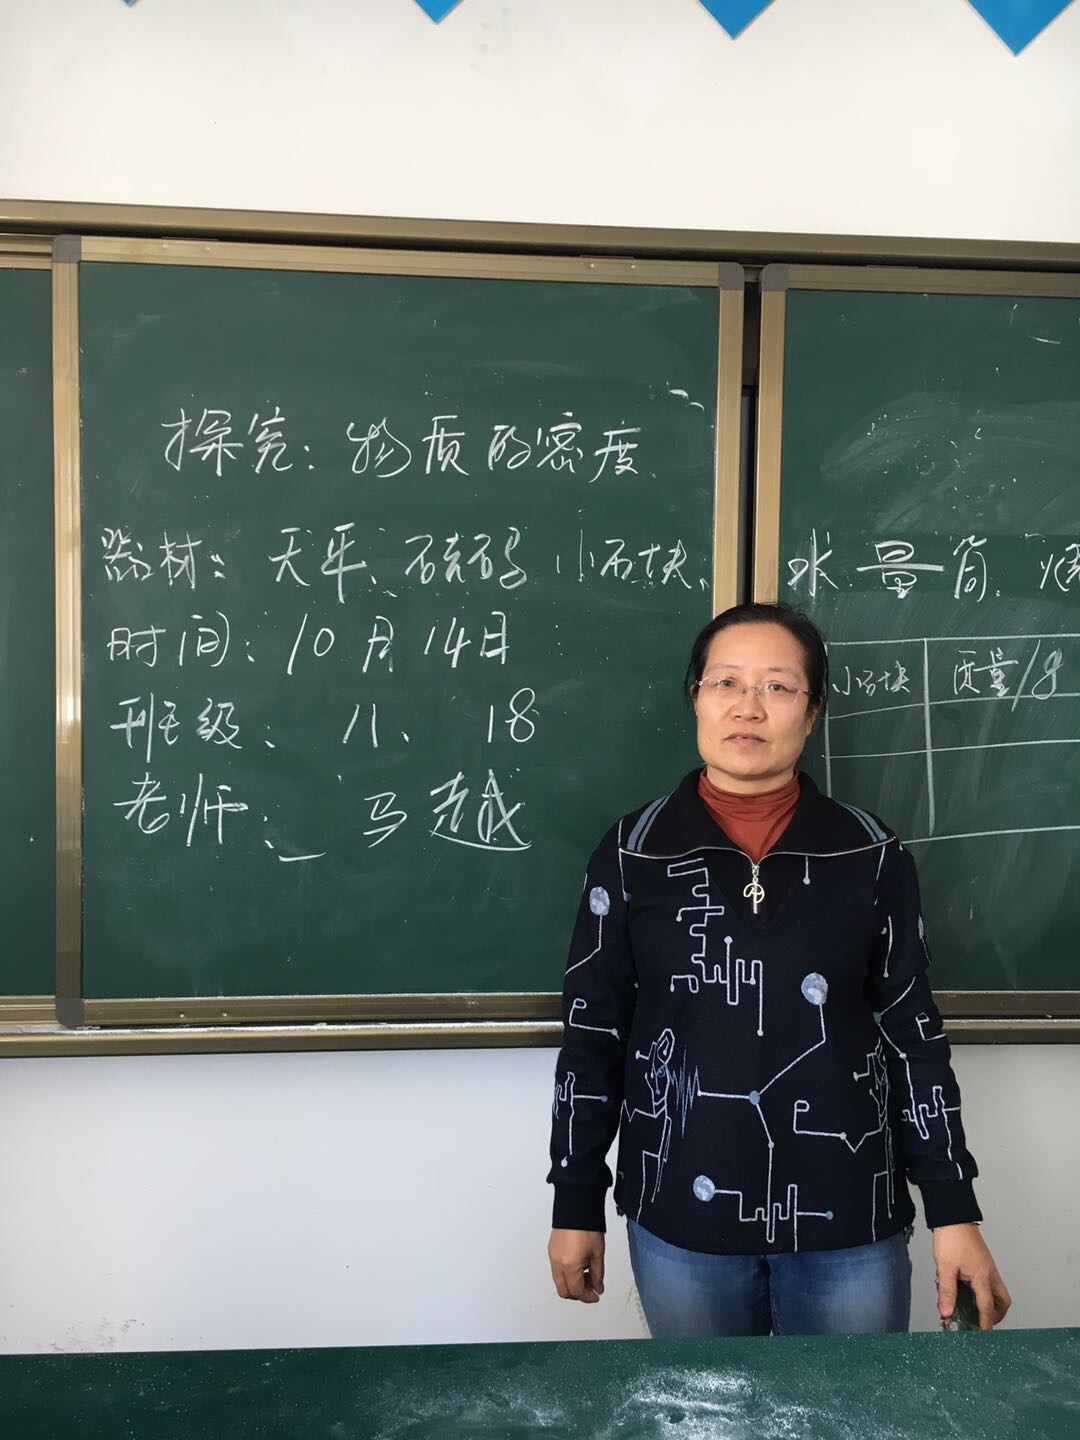 探究：物质的密度
器材：天平、砝码 小石块、水 量筒、
时间：10月14日
班级：八、18
老师：马越
小石块 质量/g